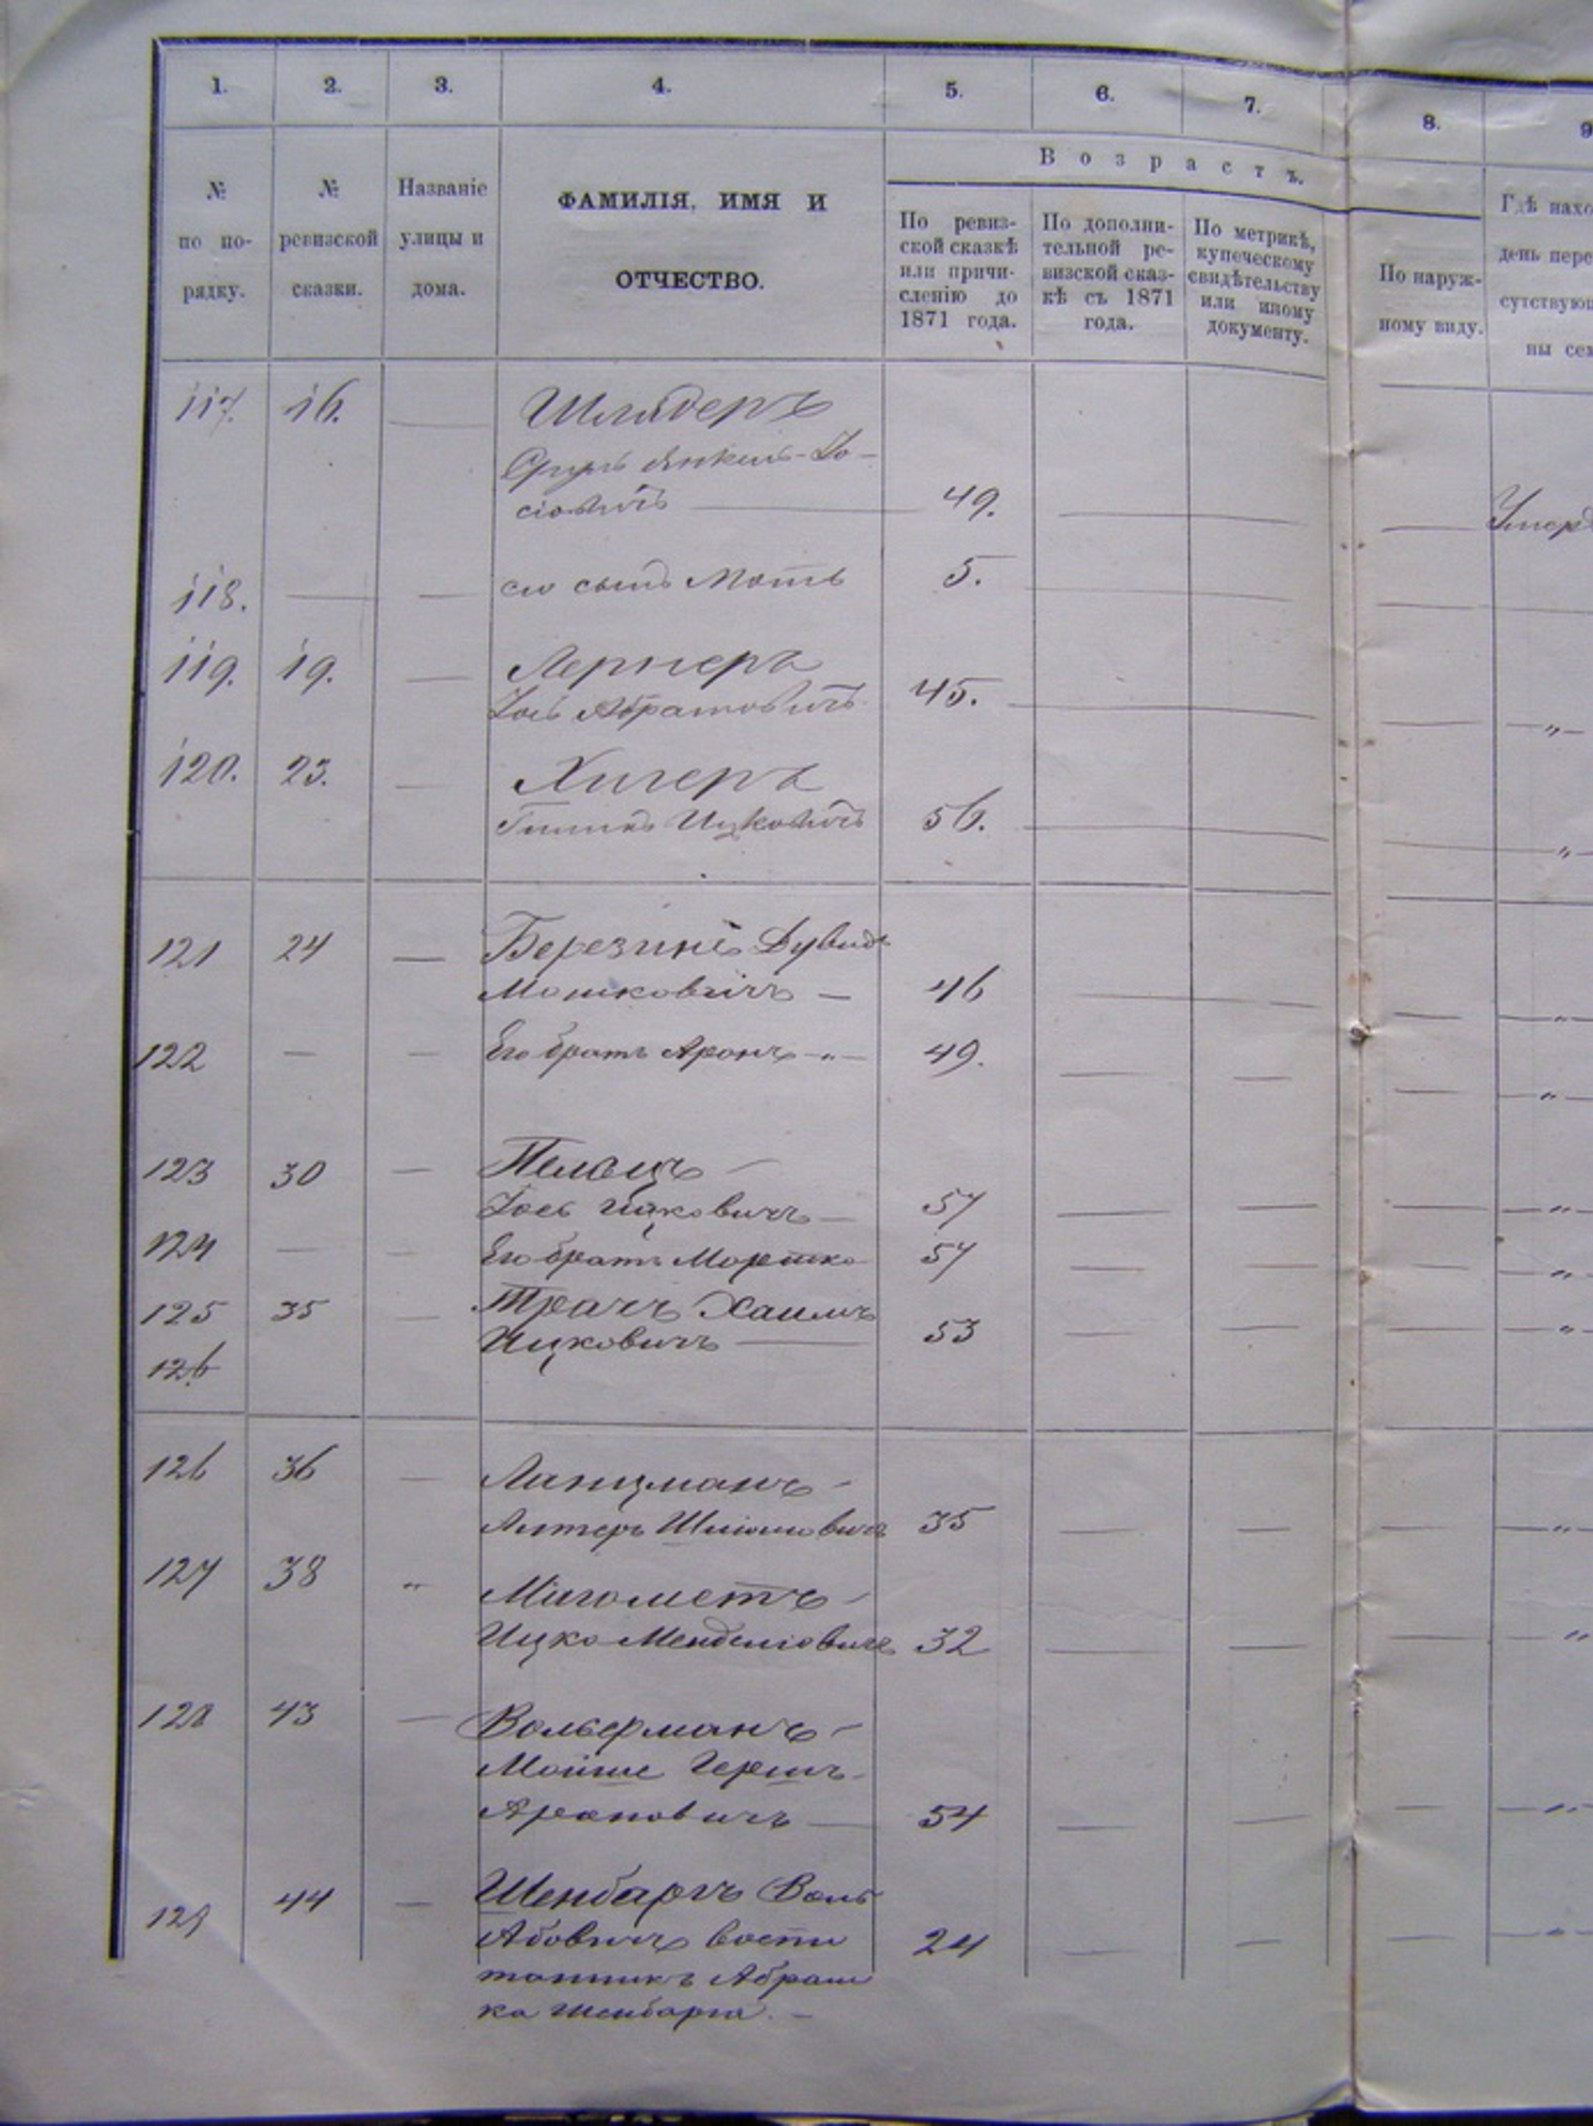 1. 2. 3. 4. 5. 6. 7. 8. 9
Возрастъ.
№ по по- рядку.
№ ревизской сказки.
Названіе улицы и дома.
ФАМИЛІЯ, ИМЯ И
ОТЧЕСТВО.
По ревиз-
ской сказкѣ
или причи-
сленію до
1871 года.
По дополни-
тельной ре-
визской сказ-
кѣ съ 1871
года.
По метрикѣ,
купеческому
свидѣтельству
или иному
документу.
По наруж-
ному виду.
Гдѣ нахо
день пере
сутствую
ны сем
117. 16. — Шлядеръ
Янкель-Іо-
сіовичъ — 49. — — — Умер
118. — — его сынъ Мотъ 5. — —
119. 19. — Лернеръ
Іось Абрамовичъ 45. — — „ —
120. 23. — Хигеръ
Ицковичъ 56. — — „ —
121 24 — Березинъ Дувидъ
Мошковичъ — 46 — — — „ —
122 — — Его братъ Аронъ — „ — 49. — — — — „ —
123 30 — Пелецъ —
Іось Ицковичъ — 57 — — — — „ —
124 — — Его братъ Мордко 57 — — — — „ —
125 35 — Трачъ Хаимъ
Ицковичъ — 53 — — — — „ —
126
126 36 — Ланцманъ —
Алтеръ Шліомовичъ 35 — — — — „ —
127 38 „ Магометъ —
Ицко Менделіовичъ 32 — — — „
128 43 — Вольерманъ —
Мойше Гершъ
Ароновичъ — 54 — — — — „ —
129 44 — Шенбаргъ Воль
Абовичъ воспи 24 — — — — „ —
танникъ Абраш
ка Шенбарга. —